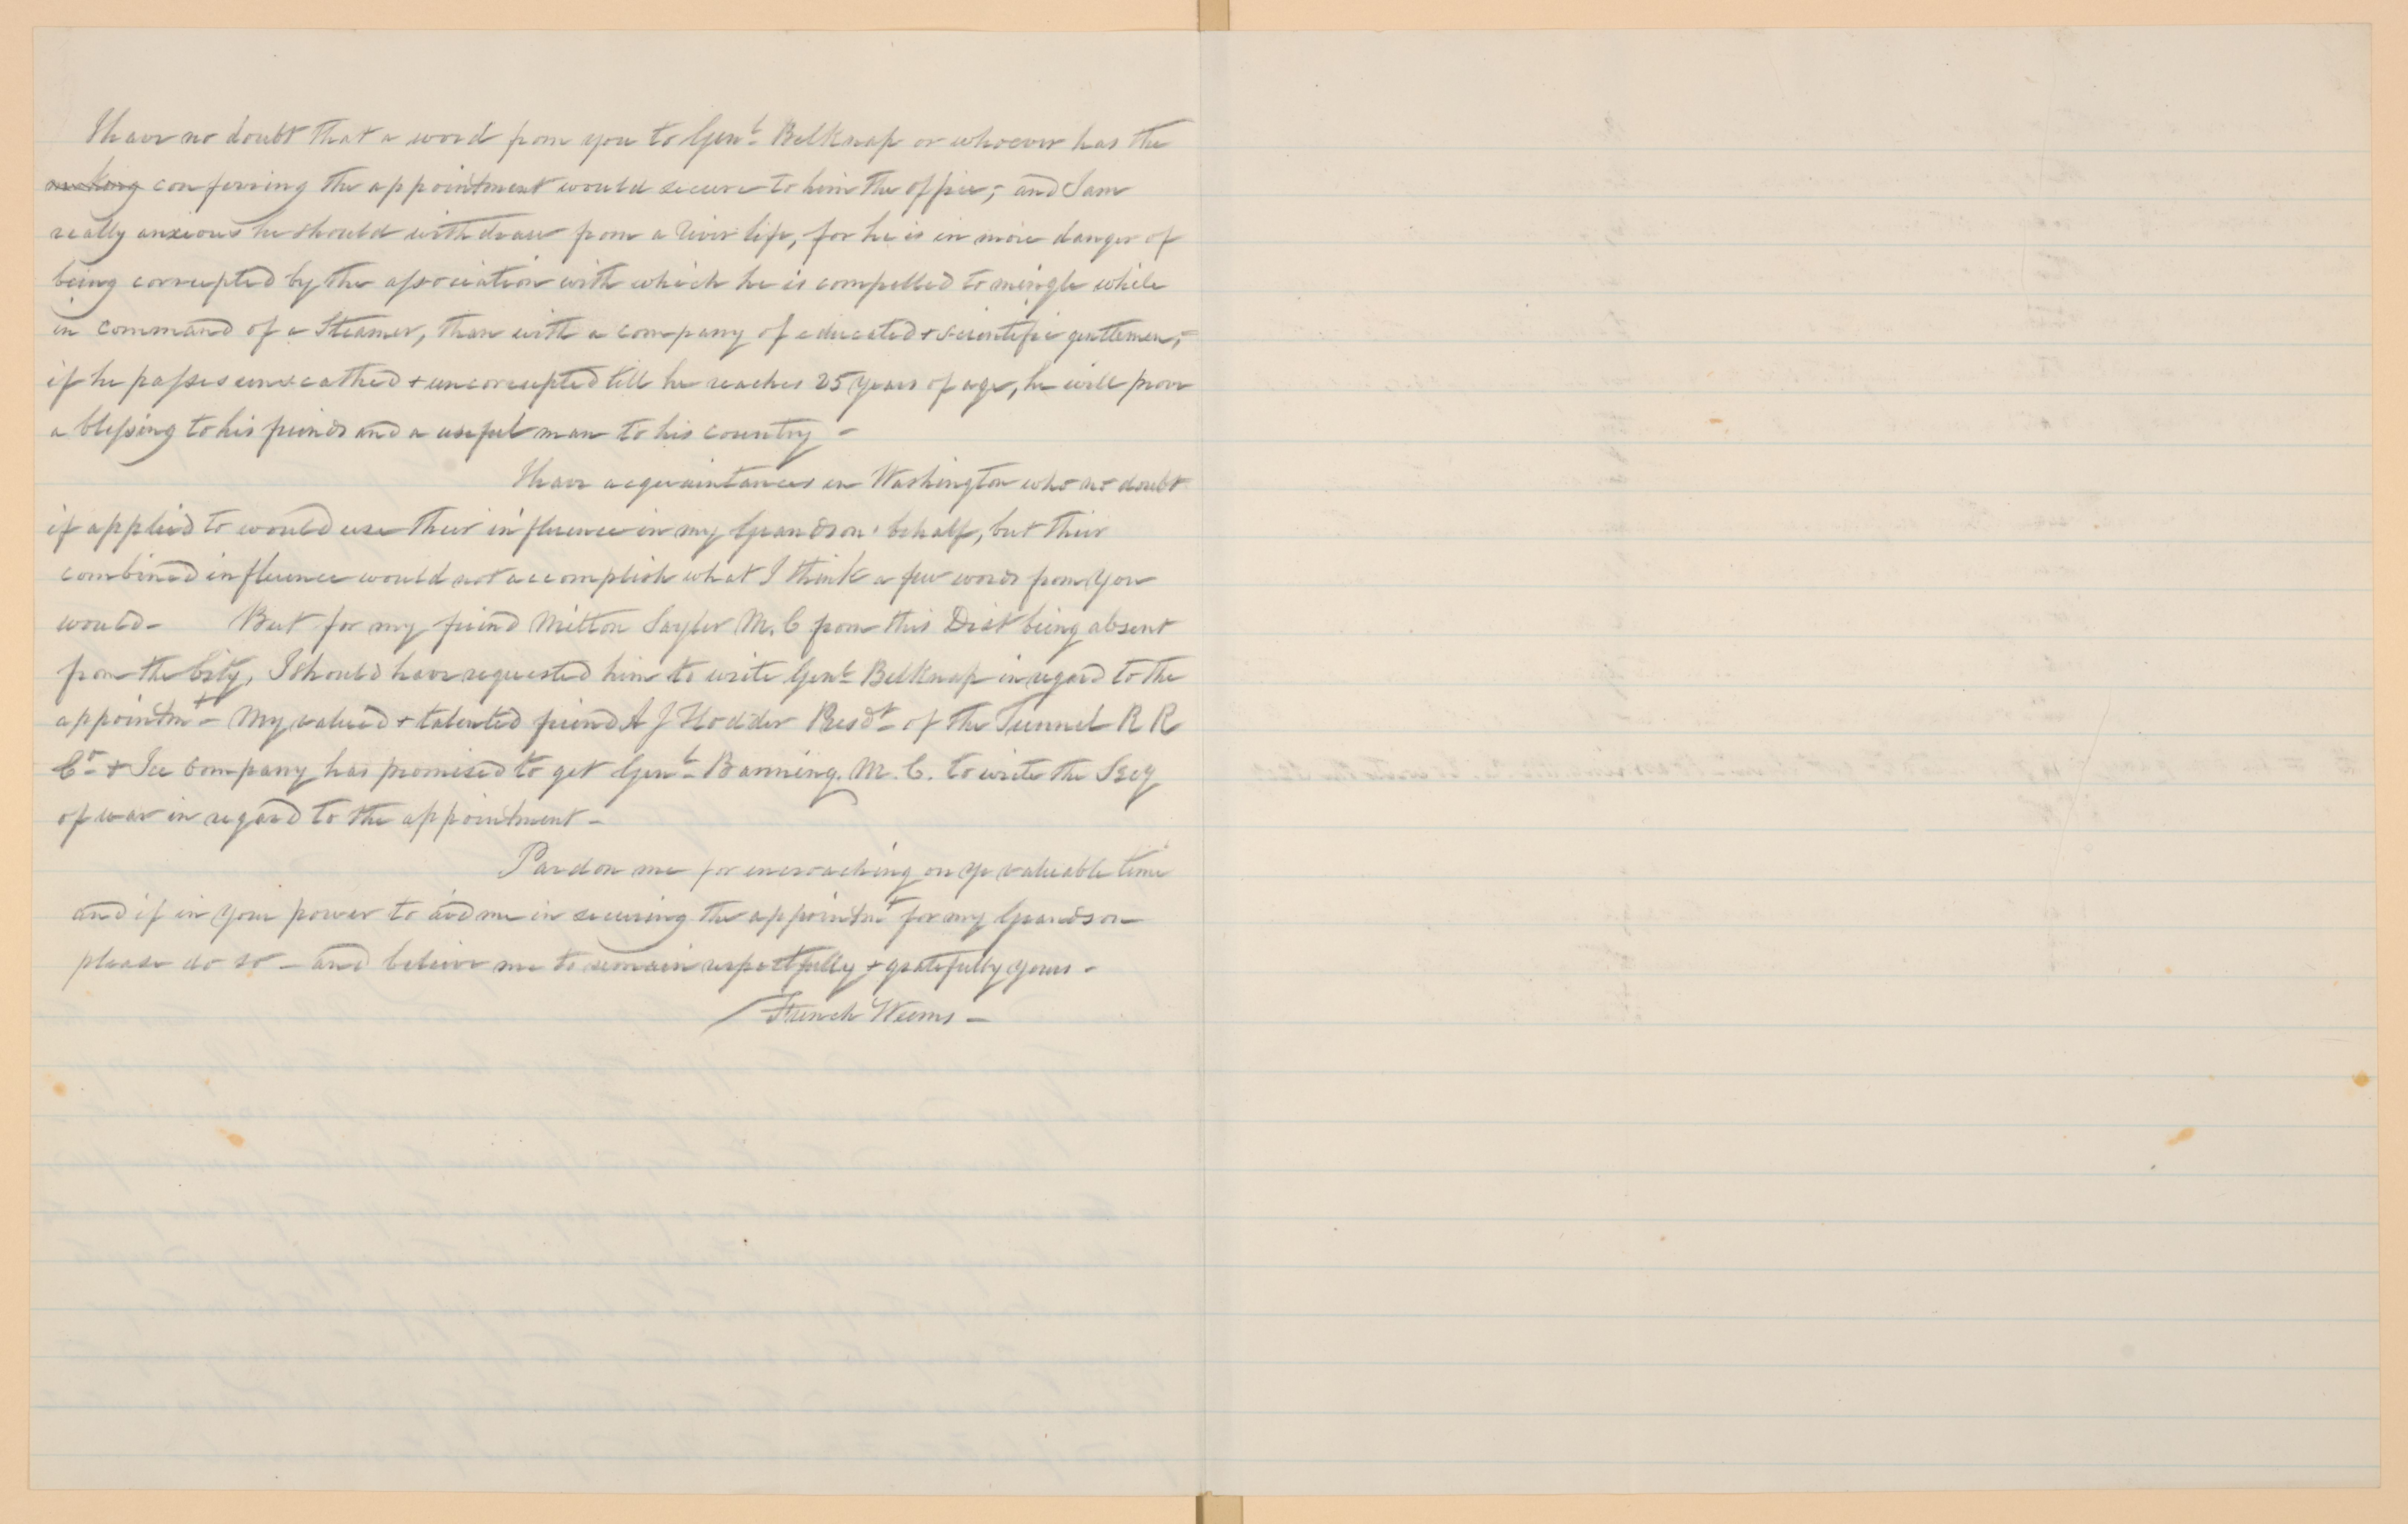 I have no doubt that a word from you to Genl. Belknap or whoever has the
making conferring the appointment would secure to him the office; and I am
really anxious he should withdraw from a river life, for he is in more danger of
being corrupted by the association with which he is compelled to mingle while
in command of a Steamer, than with a company of educated + scientific gentlemen;
if he passes unscathed + uncorrupted till he reaches 25 years of age, he will prove
a blessing to his friends and a useful man to his country -
I have acquaintances in Washington who no doubt
if applied to would use their influence in my Grandson's behalf, but their
combined influence would not accomplish what I think a few words from you
would - But for my friend Milton Sayler M. C from this Dist being absent
from the City, I should have requested him to write Genl. Belknap in regard to the
appointmt - My valued + talented friend A J Hodder Presdt. of the Tunnel R R
Co. + Ice Company has promised to get Genl. Banning M. C. to write the Secy
of war in regard to the appointment -
Pardon me for encroaching on yr valuable time
and if in your power to aid me in securing the appointmt for my Grandson
please do so - and believe me to remain respectfully + gratefully yours -
French Weems -